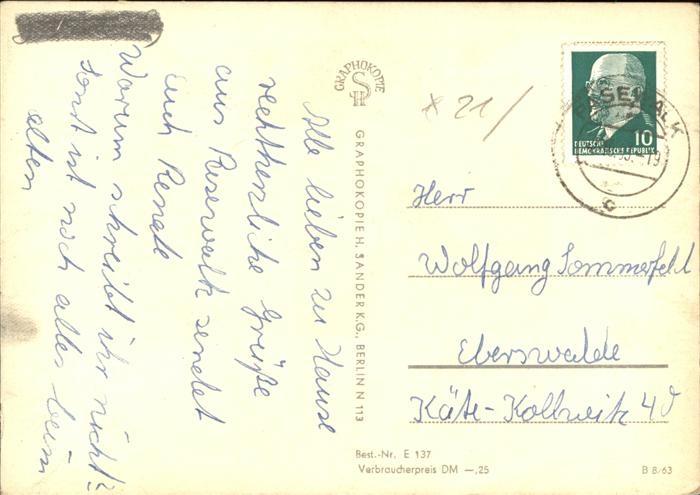 Alle lieben zu Hause
rechtherzliche Grüße
aus Pasewalk sendet
euch Renate
Warum schreibt ihr nicht?
Sonst ist noch alles beim
alten
GRAPHOKOPIE
GRAPHOKOPIE H. SANDER K.G., BERLIN N 113
* 21/
PASEWALK
10
DEUTSCHE
DEMOKRATISCHE REPUBLIK
-19
c
Herr
Wolfgang Sommerfeld
Eberswalde
Käte-Kollwitz 40
Best.-Nr. E 137
Verbraucherpreis DM —,25
B 8/63